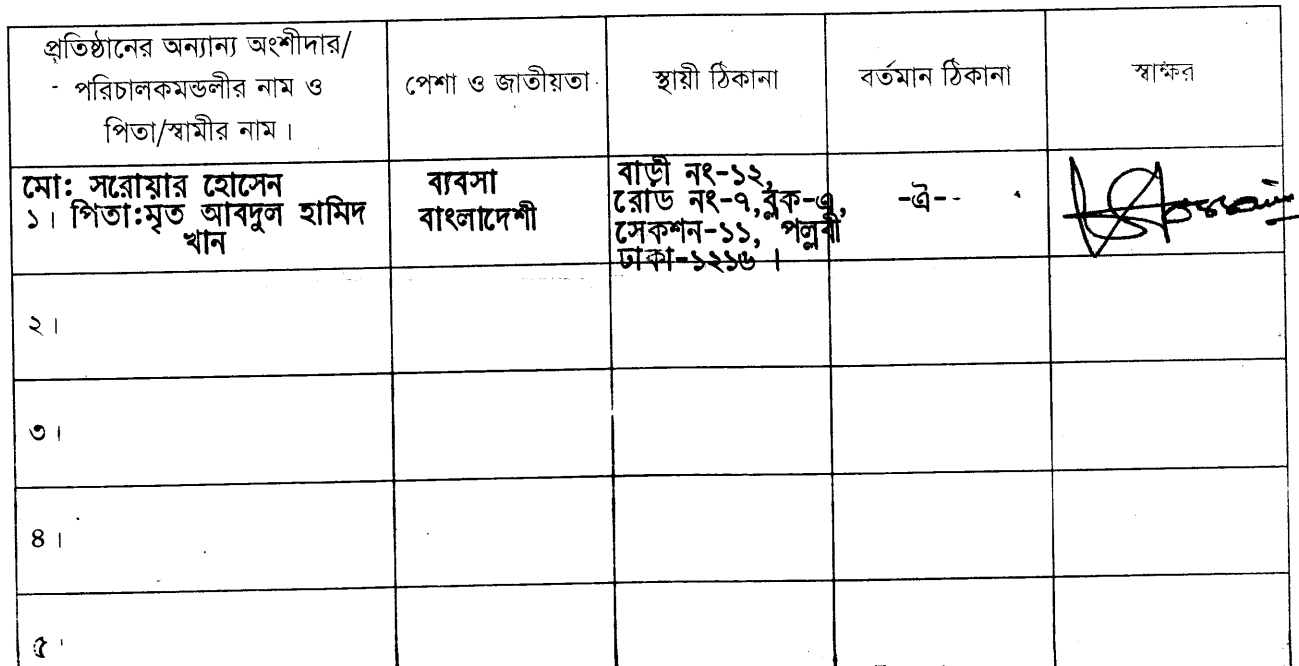 প্রতিষ্ঠানের অন্যান্য অংশীদার/
পরিচালকমন্ডলীর নাম ও
পিতা/স্বামীর নাম ।
পেশা ও জাতীয়তা
স্থায়ী ঠিকানা
বর্তমান ঠিকানা
স্বাক্ষর
মো: সরোয়ার হোসেন
১। পিতা:মৃত আবদুল হামিদ
খান
ব্যবসা
বাংলাদেশী
বাড়ী নং-১২,
রোড নং-৭,ব্লক-এ,
সেকশন-১১, পল্লবী
ঢাকা-১২১৬ ।
-ঐ--
২।
৩।
৪।
৫